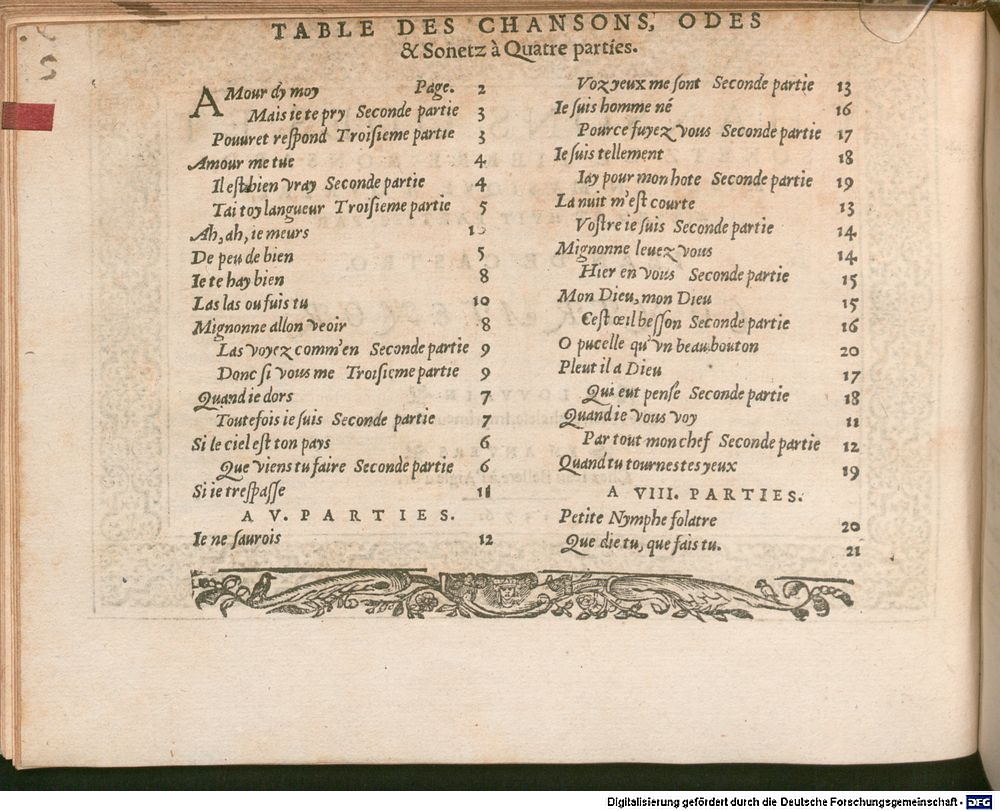 TABLE DES CHANSONS, ODES
& Sonetz à Quatre parties.
AMour dy moy Page. 2
Mais ie te pry Seconde partie 3
Pouuret respond Troisieme partie 3
Amour me tue 4
Il est bien vray Seconde partie 4
Tai toy langueur Troisieme partie 5
Ah, ah, ie meurs
De peu de bien 5
Ie te hay bien 8
Las las ou fuis tu 10
Mignonne allon veoir 8
Las voyez comm'en Seconde partie 9
Donc si vous me Troisieme partie 9
Quand ie dors 7
Toutefois ie suis Seconde partie 7
Si le ciel est ton pays 6
Que viens tu faire Seconde partie 6
Si ie trespasse 11
A V. PARTIES.
Ie ne saurois 12
Voz yeux me sont Seconde partie 13
Ie suis homme né 16
Pource fuyez vous Seconde partie 17
Ie suis tellement 18
Iay pour mon hote Seconde partie 19
La nuit m'est courte 13
Vostre ie suis Seconde partie 14
Mignonne leuez vous 14
Hier en vous Seconde partie 15
Mon Dieu, mon Dieu 15
Cest œil besson Seconde partie 16
O pucelle qu'vn beau bouton 20
Pleut il a Dieu 17
Qui eut pensé Seconde partie 18
Quand ie vous voy 11
Par tout mon chef Seconde partie 12
Quand tu tournes tes yeux 19
A VIII. PARTIES.
Petite Nymphe folatre 20
Que die tu, que fais tu. 21
Digitalisierung gefördert durch die Deutsche Forschungsgemeinschaft - DFG